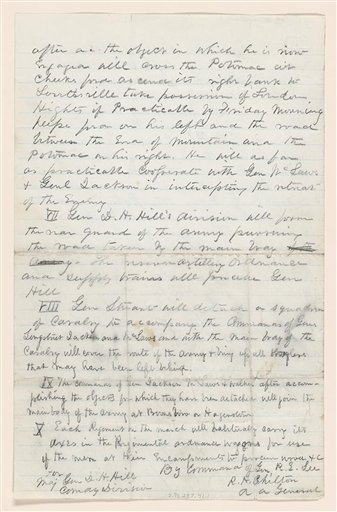 after as the object in which he is now
engaged will cross the Potomac at
Cheeks ford ascend its right bank to
Lovettsville take possession of Loudon
Hights if Practicable by Friday Morning
Keyes ford on his left and the road
between the End of Mountain and the
Potomac on his right. He will as far
as practicable Cooperate with Gen Mc Laws
& Genl Jackson in intercepting the retreat
of the Enemy
VII Gen D. H. Hill's division will form
the rear guard of the Army pursuing
the road taken by the main body
The reserve artillery Ordnance
and supply trains will precede Gen
Hill
VIII Gen Stuart will detach a squadron
of Cavalry to accompany the Commands of Gens
Longstreet Jackson and McLaws and with the main body of the
Cavalry will cover the route of the Army & bring up all stragglers
that may have been left behind
IX The commands of Gen Jackson McLaws & Walker after accom-
plishing the objects for which they have been detached will join the
main body of the army at Boonsboro or Hagerstown
X Each Regiment on the march will habitually carry its
axes in the Regimental ordnance wagons for use
of the men at their Encampments to procure wood &c
By Command of Gen R. E. Lee
For
Maj Gen D. H. Hill
R. H. Chilton
Comdg Division
A. A. General